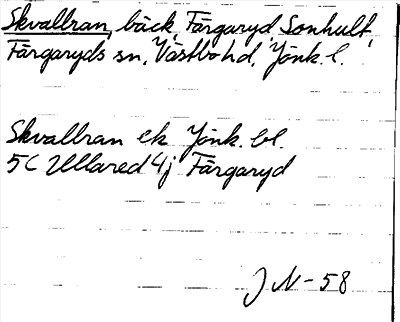 Skvallran, bäck, Färgaryd, Sonhult,
Färgaryds sn, Västbo hd, Jönk. l.
Skvallran ek Jönk. bl.
5C Ullared 4j Färgaryd
J N-58